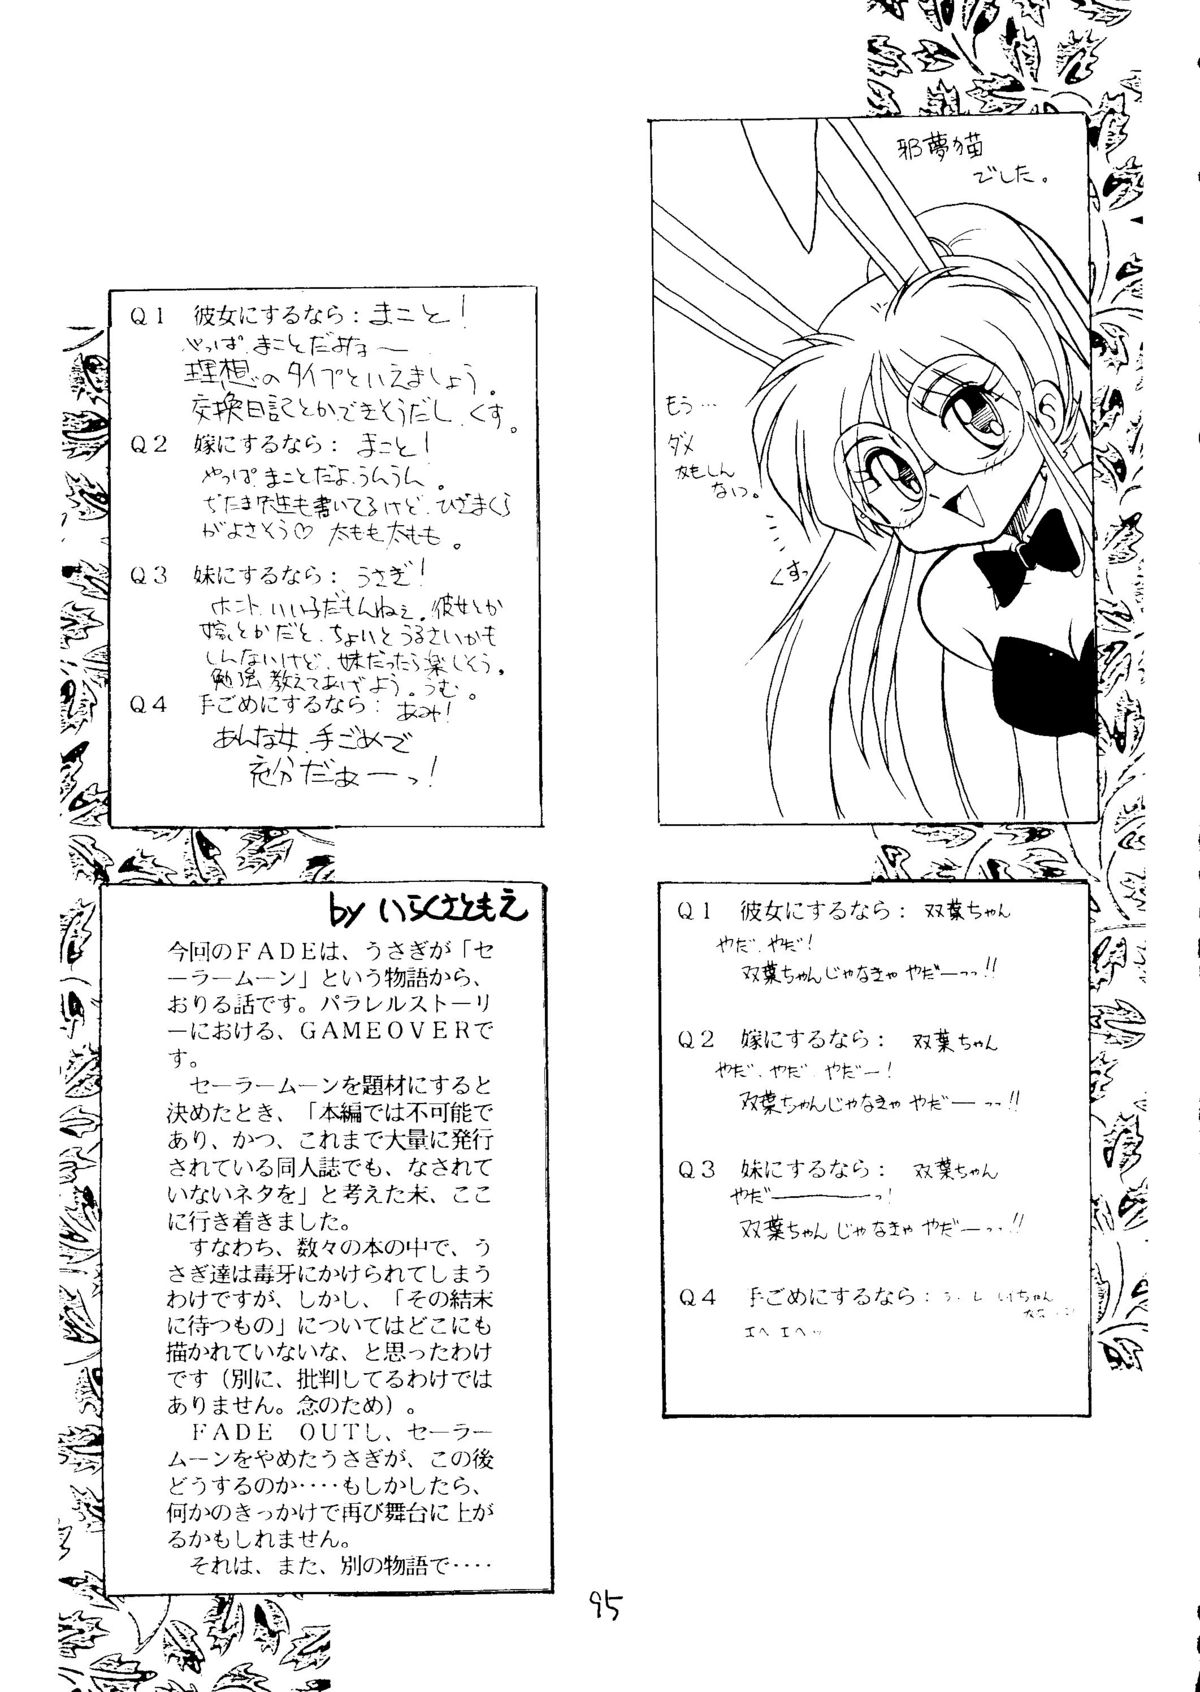 Q1 彼女にするなら：まこと！
やっぱ、まことだよね～
理想のタイプといえましょう。
交換日記とかできそうだし、くす。
Q2 嫁にするなら：まこと！
やっぱまことだよ、うんうん。
先生も書いてるけど、ひざまくら
がよさそう♡ 太もも太もも。
Q3 妹にするなら：うさぎ！
ホント、いい子だもんねぇ。彼女とか
嫁とかだと、ちょいとうるさいかも
しんないけど、妹だったら楽しそう。
勉強教えてあげよう。うむ。
Q4 手ごめにするなら：あみ！
あんな女、手ごめで
充分だぁーっ！
邪夢猫
でした。
もう…
ダメ
かもしん
ない。
くすっ
by いらくさともえ
今回のＦＡＤＥは、うさぎが「セ
ーラームーン」という物語から、
おりる話です。パラレルストーリ
ーにおける、ＧＡＭＥＯＶＥＲで
す。
セーラームーンを題材にすると
決めたとき、「本編では不可能で
あり、かつ、これまで大量に発行
されている同人誌でも、なされて
いないネタを」と考えた末、ここ
に行き着きました。
すなわち、数々の本の中で、う
さぎ達は毒牙にかけられてしまう
わけですが、しかし、「その結末
に待つもの」についてはどこにも
描かれていないな、と思ったわけ
です（別に、批判してるわけでは
ありません。念のため）。
ＦＡＤＥ ＯＵＴし、セーラー
ムーンをやめたうさぎが、この後
どうするのか‥‥もしかしたら、
何かのきっかけで再び舞台に上が
るかもしれません。
それは、また、別の物語で‥‥
Q1 彼女にするなら：双葉ちゃん
やだ、やだ！
双葉ちゃんじゃなきゃ やだーっっ!!
Q2 嫁にするなら：双葉ちゃん
やだ、やだ、やだー！
双葉ちゃんじゃなきゃ やだーっっ!!
Q3 妹にするなら：双葉ちゃん
やだ――――っ！
双葉ちゃんじゃなきゃ やだーっっ!!
Q4 手ごめにするなら：
エヘ エヘ…
95